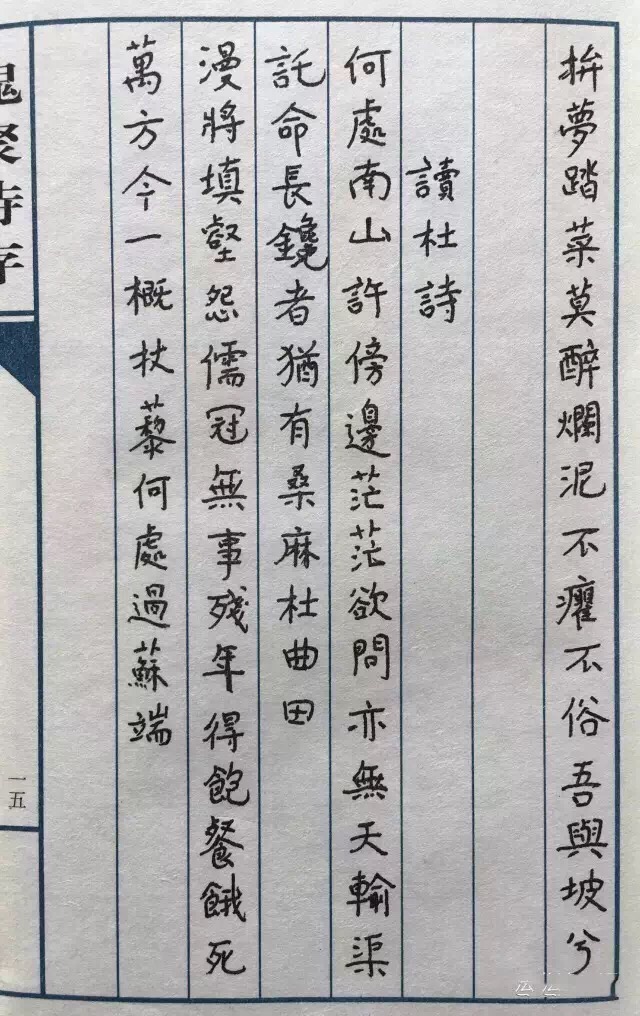 拚夢踏菜莫醉爛泥不癯不俗吾與坡兮
讀杜詩
何處南山許傍邊茫茫欲問亦無天輸渠
託命長鑱者猶有桑麻杜曲田
漫將填壑怨儒冠無事殘年得飽餐餓死
萬方今一概杖藜何處過蘇端
槐聚詩存
一五